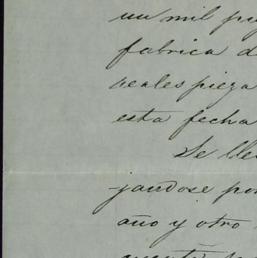 un mil p
fabrica d
reales pieza
esta fecha
Se lle
jandose por
año y otro